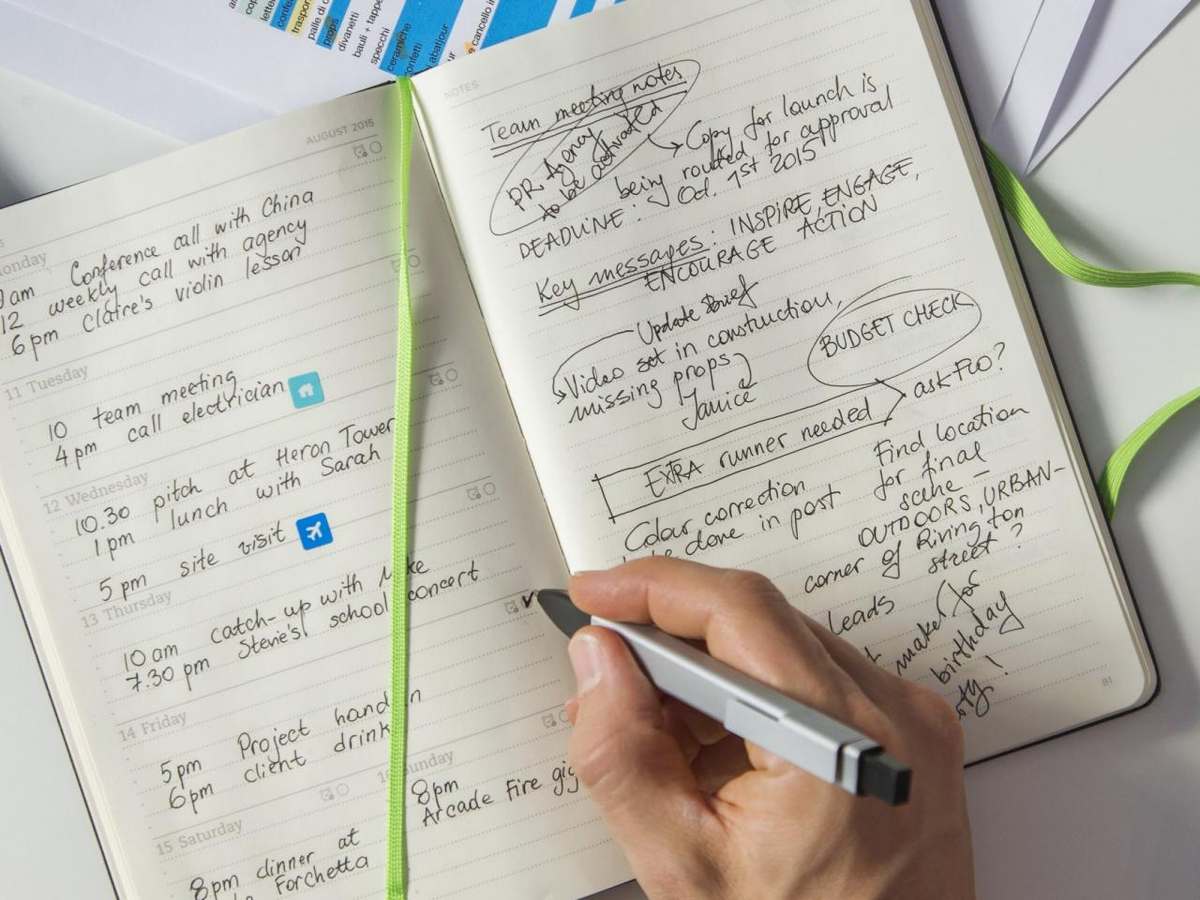 cop
lette
confe
traspor
palle di c
props
divanetti
bauli + tappe
specchi
ceramiche
confetti
abatjour
cancello in
AUGUST 2015
onday
am Conference call with China
12 weekly call with agency
6pm Claire's violin lesson
11 Tuesday
10 team meeting
4pm call electrician
12 Wednesday
10.30 pitch at Heron Tower
1pm lunch with Sarah
5pm site visit
13 Thursday
10am catch-up with
7.30pm Stevie's school concert
14 Friday
5pm Project hand in
6pm client drink
15 Saturday
8pm dinner at
Forchetta
Sunday
8pm
Arcade Fire gig
NOTES
Team meeting notes
PR Agency
to be activated
Copy for launch is
being routed for approval
DEADLINE: Oct. 1st 2015
Key messages: INSPIRE, ENGAGE,
ENCOURAGE ACTION
Update Brief
Video set in construction,
missing props
Janice
BUDGET CHECK
EXTRA runner needed
ask Flo?
Colour correction
done in post
Find location
for final
scene —
OUTDOORS, URBAN-
corner of Rivington
street?
leads
maker for
birthday
ty!
81